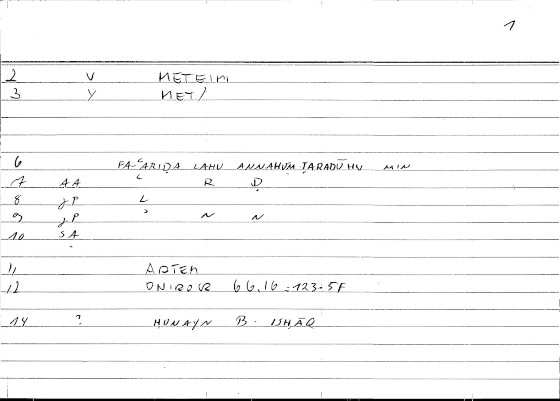 1
2 V METEIM
3 Y MET/
6 FA-ʿARIḌA LAHU ANNAHUM ṬARADŪHU MIN
7 AA ʿ R Ḍ
8 JP L
9 JP ʾ N N
10 SA
11 ARTEM
12 ONIROCR 66,16 = 123.5F
14 ? ḤUNAYN B. ISḤĀQ